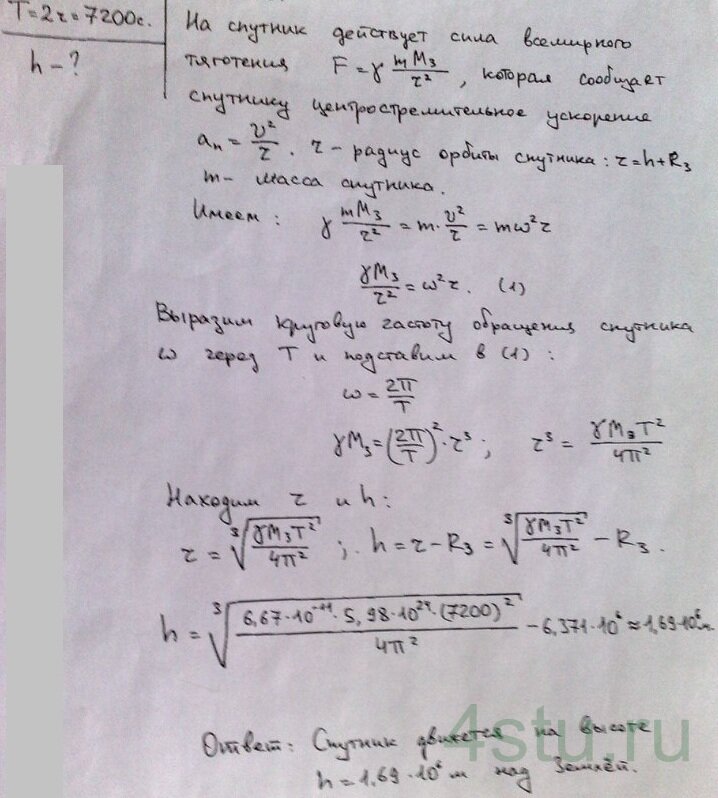 T = 2ч = 7200с.
h - ?
На спутник действует сила всемирного
тяготения F = γ mM₃/r², которая сообщает
спутнику центростремительное ускорение
aₙ = υ²/r. r - радиус орбиты спутника: r = h + R₃
m - масса спутника.
Имеем: γ mM₃/r² = m · υ²/r = mω²r
γM₃/r² = ω²r. (1)
Выразим круговую частоту обращения спутника
ω через T и подставим в (1):
ω = 2π/T
γM₃ = (2π/T)² · r³; r³ = γM₃T²/4π²
Находим r и h:
r = ∛(γM₃T²/4π²); h = r - R₃ = ∛(γM₃T²/4π²) - R₃.
h = ∛(6,67·10⁻¹¹ · 5,98·10²⁴ · (7200)²/4π²) - 6,371·10⁶ ≈ 1,69·10⁶ м.
Ответ: Спутник движется на высоте
h = 1,69·10⁶ м над Землёй.
4stu.ru